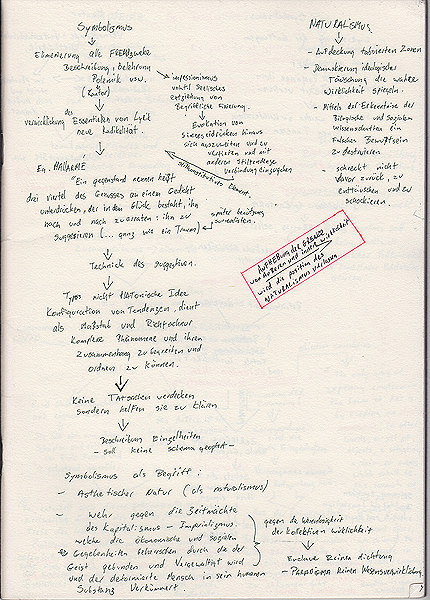 Symbolismus
Eliminierung alle FREMDzwecke
Beschreibung, Belehrung
Polemik usw.
(Kontor)
impressionismus
vokstil Seelisches
entziehung von
Begriffliche Fixierung.
Evokation von
hinaus
sich auszuweiten und zu
vertiefen und mit
anderen Stillenlage
verbindung einzugehen
des Essentiellen von Lyrik
neue Radikalität.
Element.
En. MALLARMÉ
"Ein gegenstand nennen heißt
drei viertel des Genusses an einem Gedicht
unterdrücken, der in dem Glück besteht, ihn
nach und nach zu erraten: ihn zu
suggerieren (... ganz wie ein Traum)
später berührung
surrealisten.
Technick des suggestiven.
Typos nicht Platonische Idee
Konfiguration von Tendenzen, dient
als Maßstab und Richtschnur
Komplexe Phänomene und ihren
Zusammenhang zu begreifen und
ordnen zu können.
Keine Tatsachen verdecken
sondern helfen sie zu klären
Beschreibung Einzelheiten
- soll keine schema geopfert -
Symbolismus als Begriff:
- Ästhetischer Natur (als naturalismus)
- wehr gegen die Zeitmächte
des Kapitalismus - Imperialismus.
welche die ökonomische und sozialen
Gegebenheiten beherrschen durch die der
Geist gebunden und vergewaltigt wird
und der deformierte Mensch in sein humanen
Substanz verkümmert.
gegen die
der kollektiven wirklichkeit
Enclave Reinen dichtung
- PARADIGMA Reinen Wesensverwirklichung.
NATURALISMUS
- Aufdeckung tabuierten Zonen
- Demaskierung ideologischer
Täuschung die wahre
wirklichkeit spiegeln.
- Mittels der Erkentnisse der
Biologische und sozialen
Wissenschaften ein
Falsches Bewußtsein
zu destruieren
- schreckt nicht
davor zurück, zu
enttäuschen und zu
schockieren.
AUFHEBUNG DER GRENZE
von äußeren und innere wirklichkeit
wird die position des
NATURALISMUS verlassen